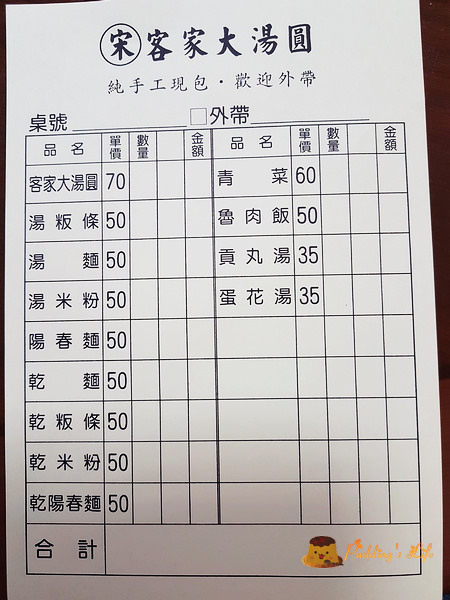 宋客家大湯圓
純手工現包·歡迎外帶
桌號 □外帶
品名 單價 數量 金額 品名 單價 數量 金額
客家大湯圓 70 青菜 60
湯粄條 50 魯肉飯 50
湯麵 50 貢丸湯 35
湯米粉 50 蛋花湯 35
陽春麵 50
乾麵 50
乾粄條 50
乾米粉 50
乾陽春麵 50
合計
Pudding's Life